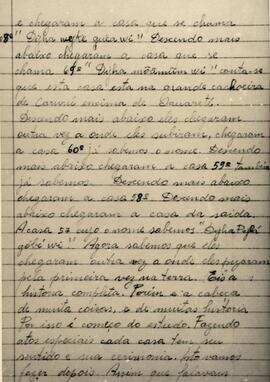 e chegaram a casa que se chama
68ª "Diyha weke guea wi" Descendo mais
abaixo chegaram a casa que se
chama 69ª "Diyha wi" conta-se
que esta casa esta na grande cachoeira
de Caruri encima de
Descendo mais abaixo eles chegaram
outra vez a onde eles subiram, chegaram
a casa 60ª já sabemos o nome. Descendo
mais abaixo chegaram a casa 59ª também
já sabemos. Descendo mais abaixo
chegaram a casa 58ª. Descendo mais
abaixo chegaram a casa da saida.
A casa 57 cujo o nome sabemos "Diyha
wi" Agora sabemos que eles
chegaram outra vez a onde eles pizaram
pela primeira ves na terra. Eis a
história completa. Porém é a cabeça
de muita coisas, e de muitas história
Por isso é começo do estudo. Fazendo
atos especiais cada casa tem seu
sentido e sua cerimonia. Isto vamos
fazer depois. Assim que falavam